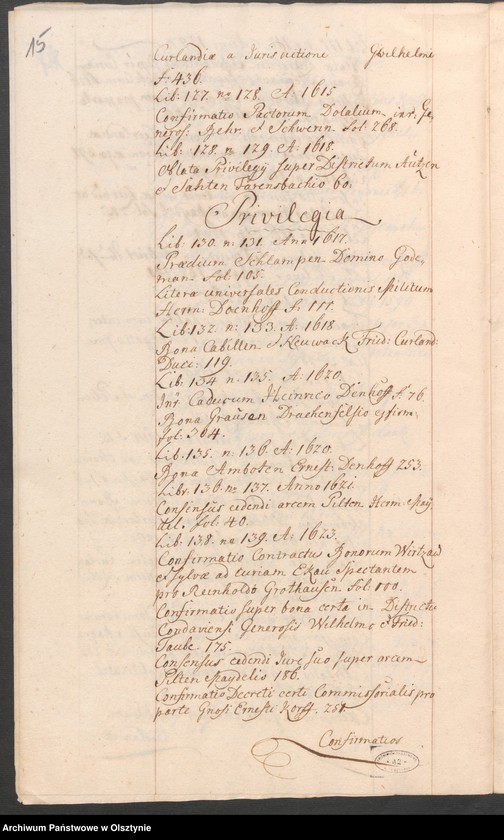 15
Curlandiæ a Jurisdictione Gwilhelmi
F. 436.
Lib: 127. nō 128. A: 1615
Confirmatio Pactorum Dotalium int: Ge,
neros: Behr. et Schwenn fol: 268.
Lib: 128. n 129. A: 1618.
Oblata Privilegij super Districtum Autzen
et Sahten Farensbachio 60.
Privilegia
Lib: 130. n: 131. Anno 1617.
Prædium Schlampen Domino Gode,
man fol: 105.
Literæ universales Conductionis Militum
Herm: Doenhoff f: 111.
Lib: 132. n: 133. A: 1618
Bona Cabillen et Neuwack Frid: Curland:
Duci: 119.
Lib: 134 n: 135. A: 1620.
Jus Caducum Heinrico Denhoff f: 76.
Bona Grausen Drachenfelsio
fol: 304.
Lib: 135. n: 136. A: 1620.
Bona Amboten Ernest: Denhoff 253.
Libr: 136. nō 137. Anno 1621
Consensus cedendi arcem Pilten Herm: May,
del. fol: 40.
Lib: 138. nō 139. A: 1623.
Confirmatio Contractus Bonorum Wirtzau
et sylvæ ad curiam Ekau Spectantem
pro Reinholdo Grothausen fol: 100.
Confirmatio super bona certa in Districtu
Candaviensi Generosis Wilhelmo et Frid:
Taube. 175.
Consensus cedendi Jure suo super arcem
Pilten Maydelio 186.
Confirmatio Decreti certi Commissorialis pro
parte Gnosi Ernesti Korff. 251.
Confirmatios
32
Archiwum Państwowe w Olsztynie